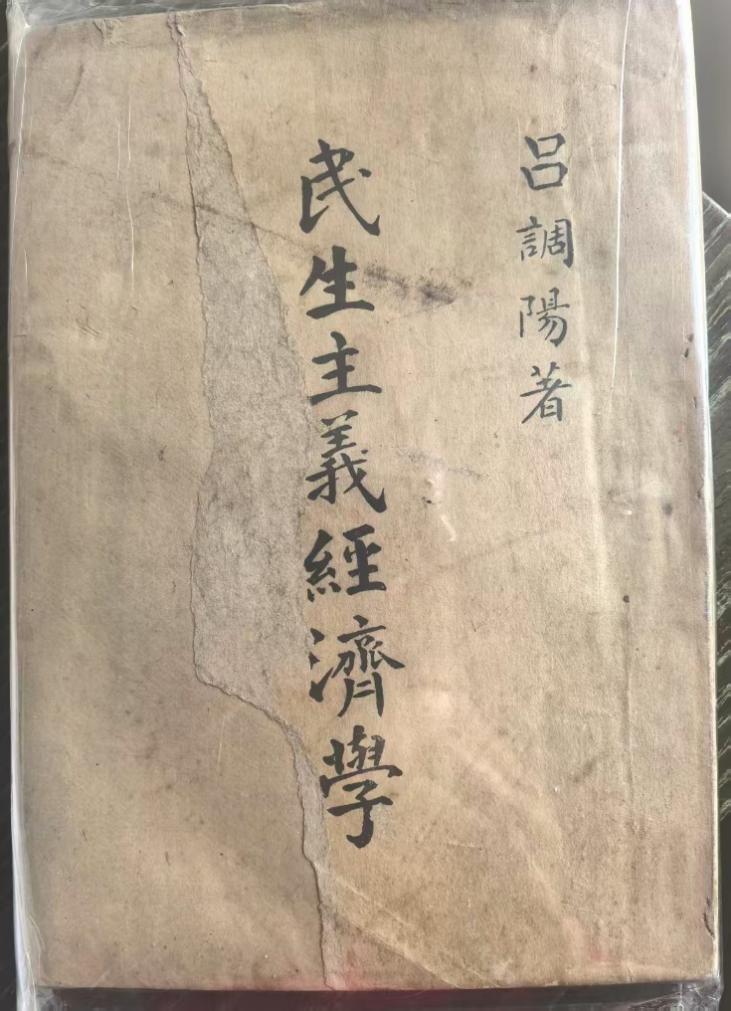 呂調陽著
民生主義經濟學